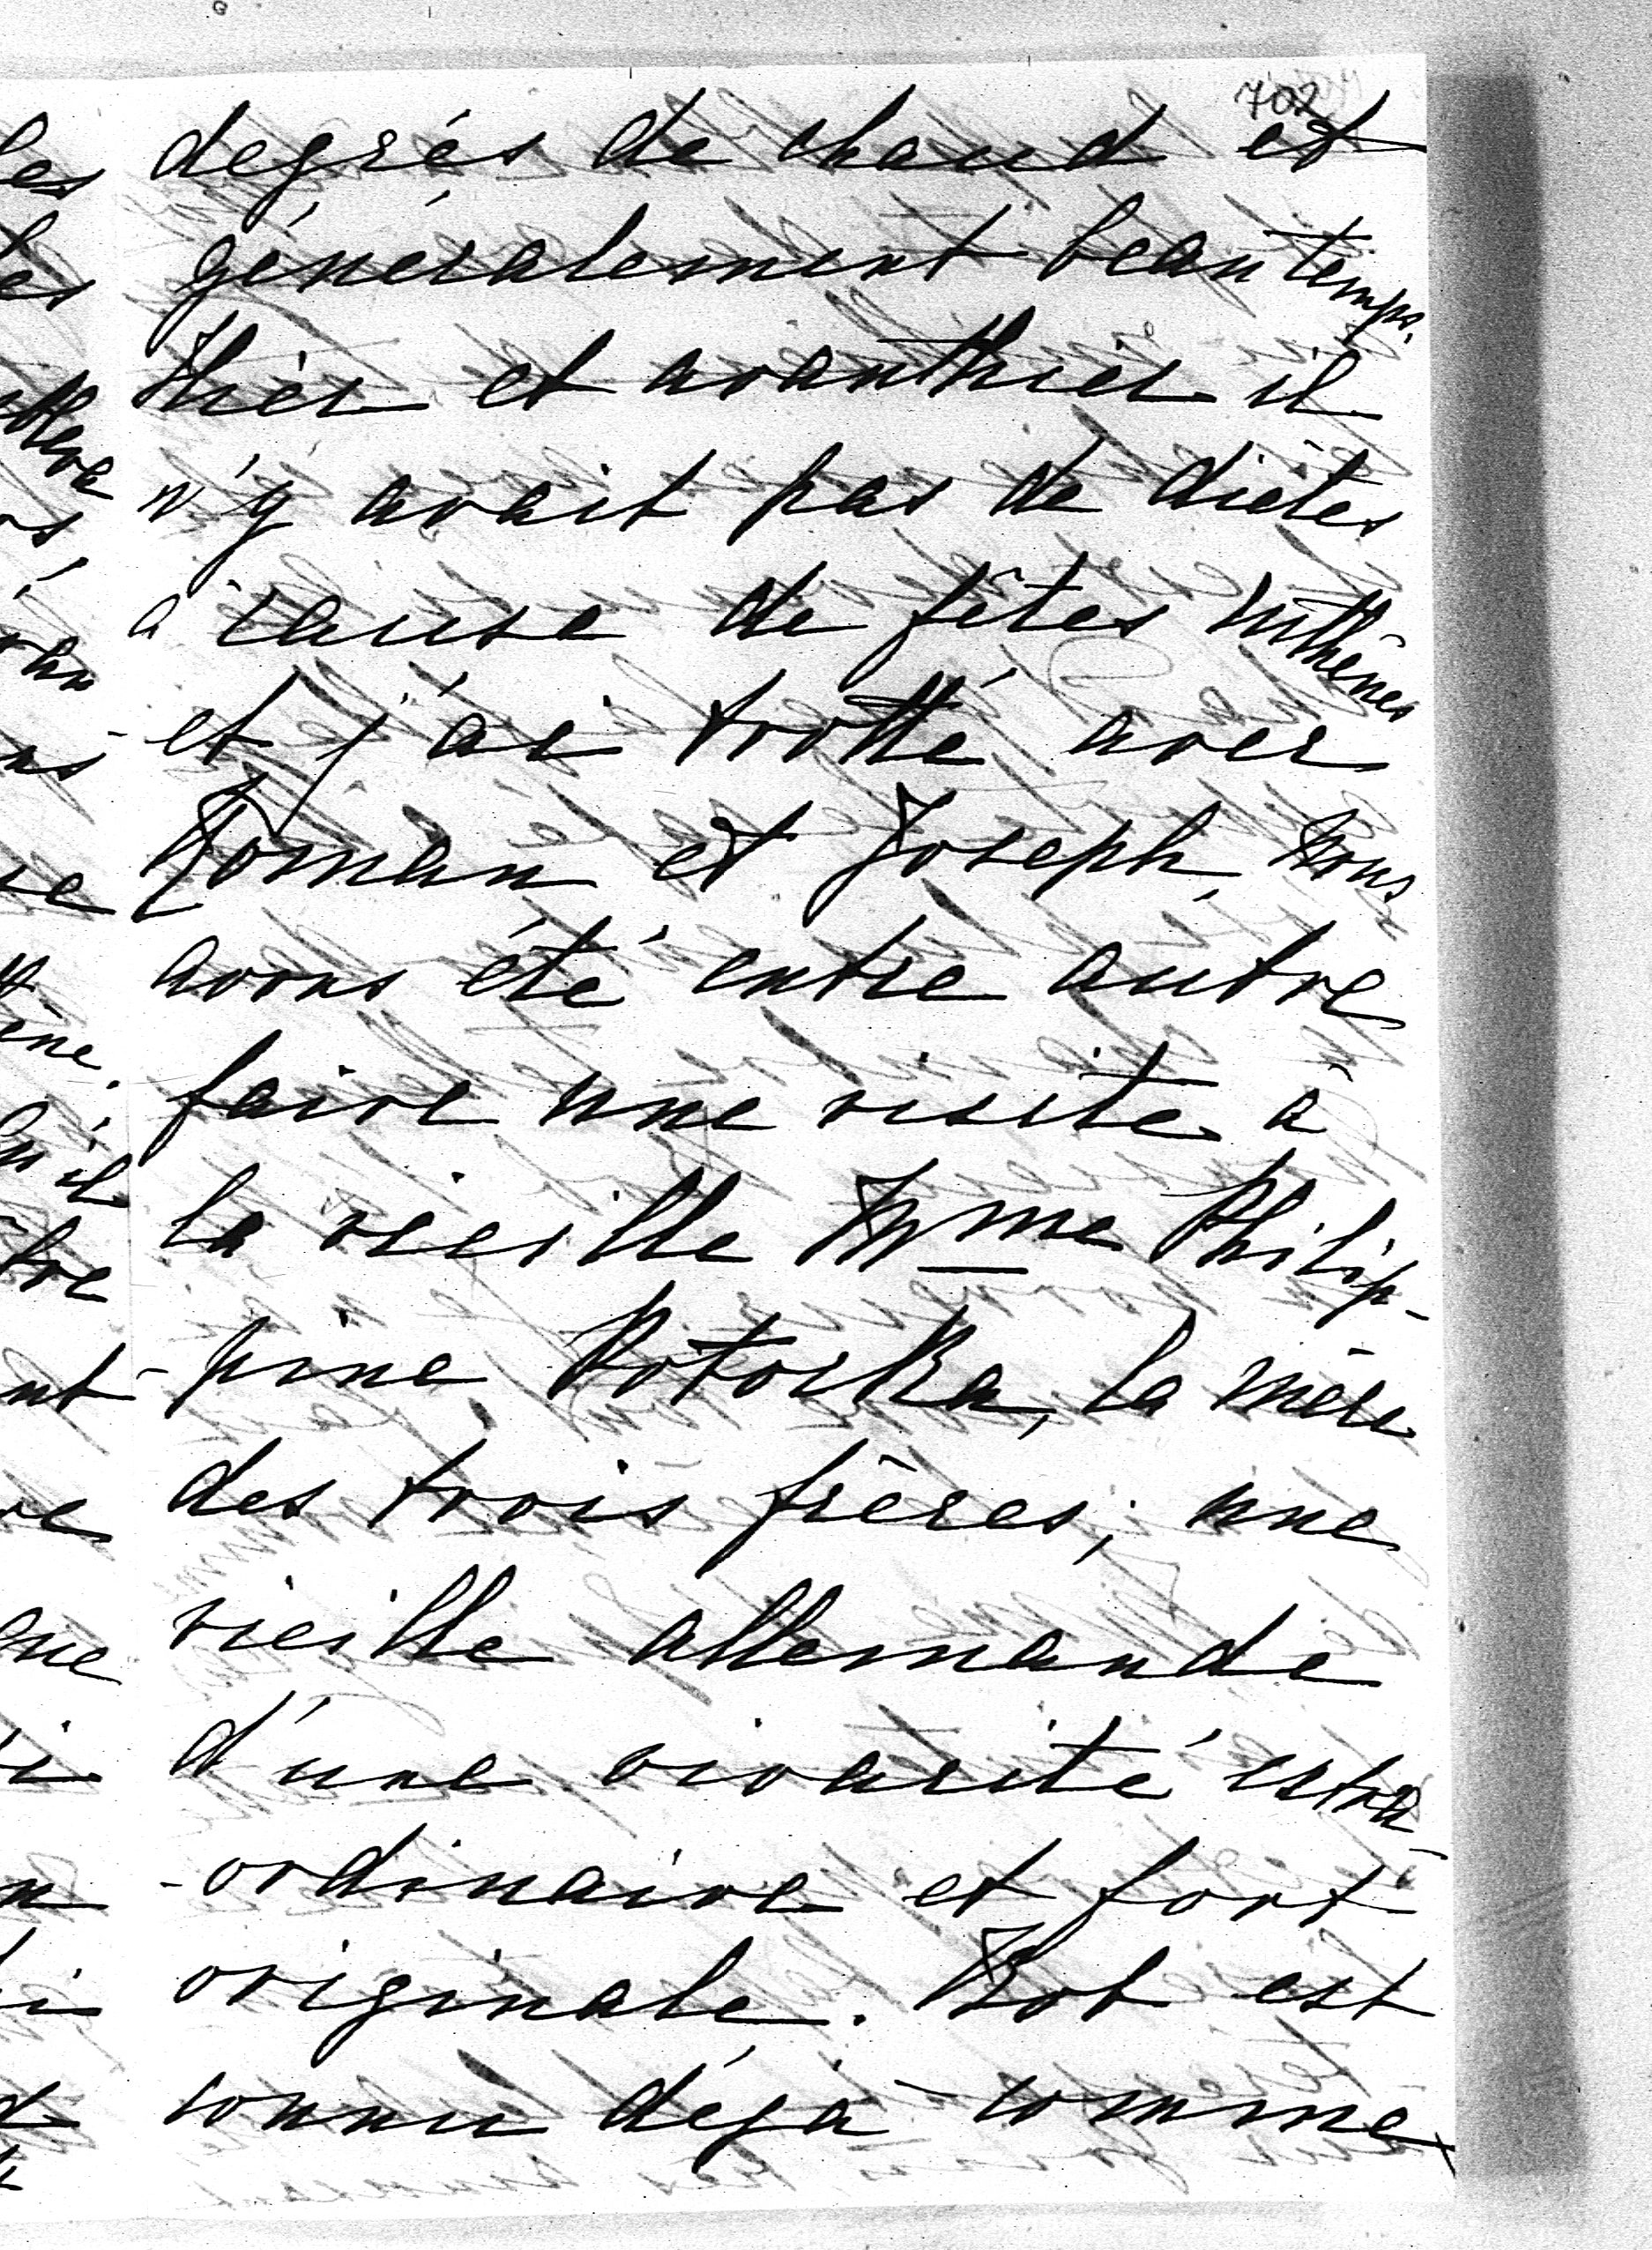 702
degrés de chaud et
généralement beau temps.
Hier et avanthier il
n'y avait pas de diètes
à cause de fêtes ruthènes
et j'ai trotté avec
Roman et Joseph, nous
avons été entre autre
faire une visite à
la vieille Mme Philip-
-pine Potocka, la mère
des trois frères; une
vieille allemande
d'une vivacité extra-
-ordinaire et fort
originale. Bob est
connu déjà comme